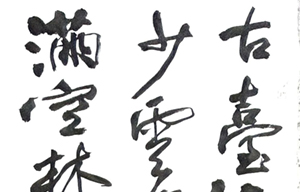 古臺
少雲
滿空林